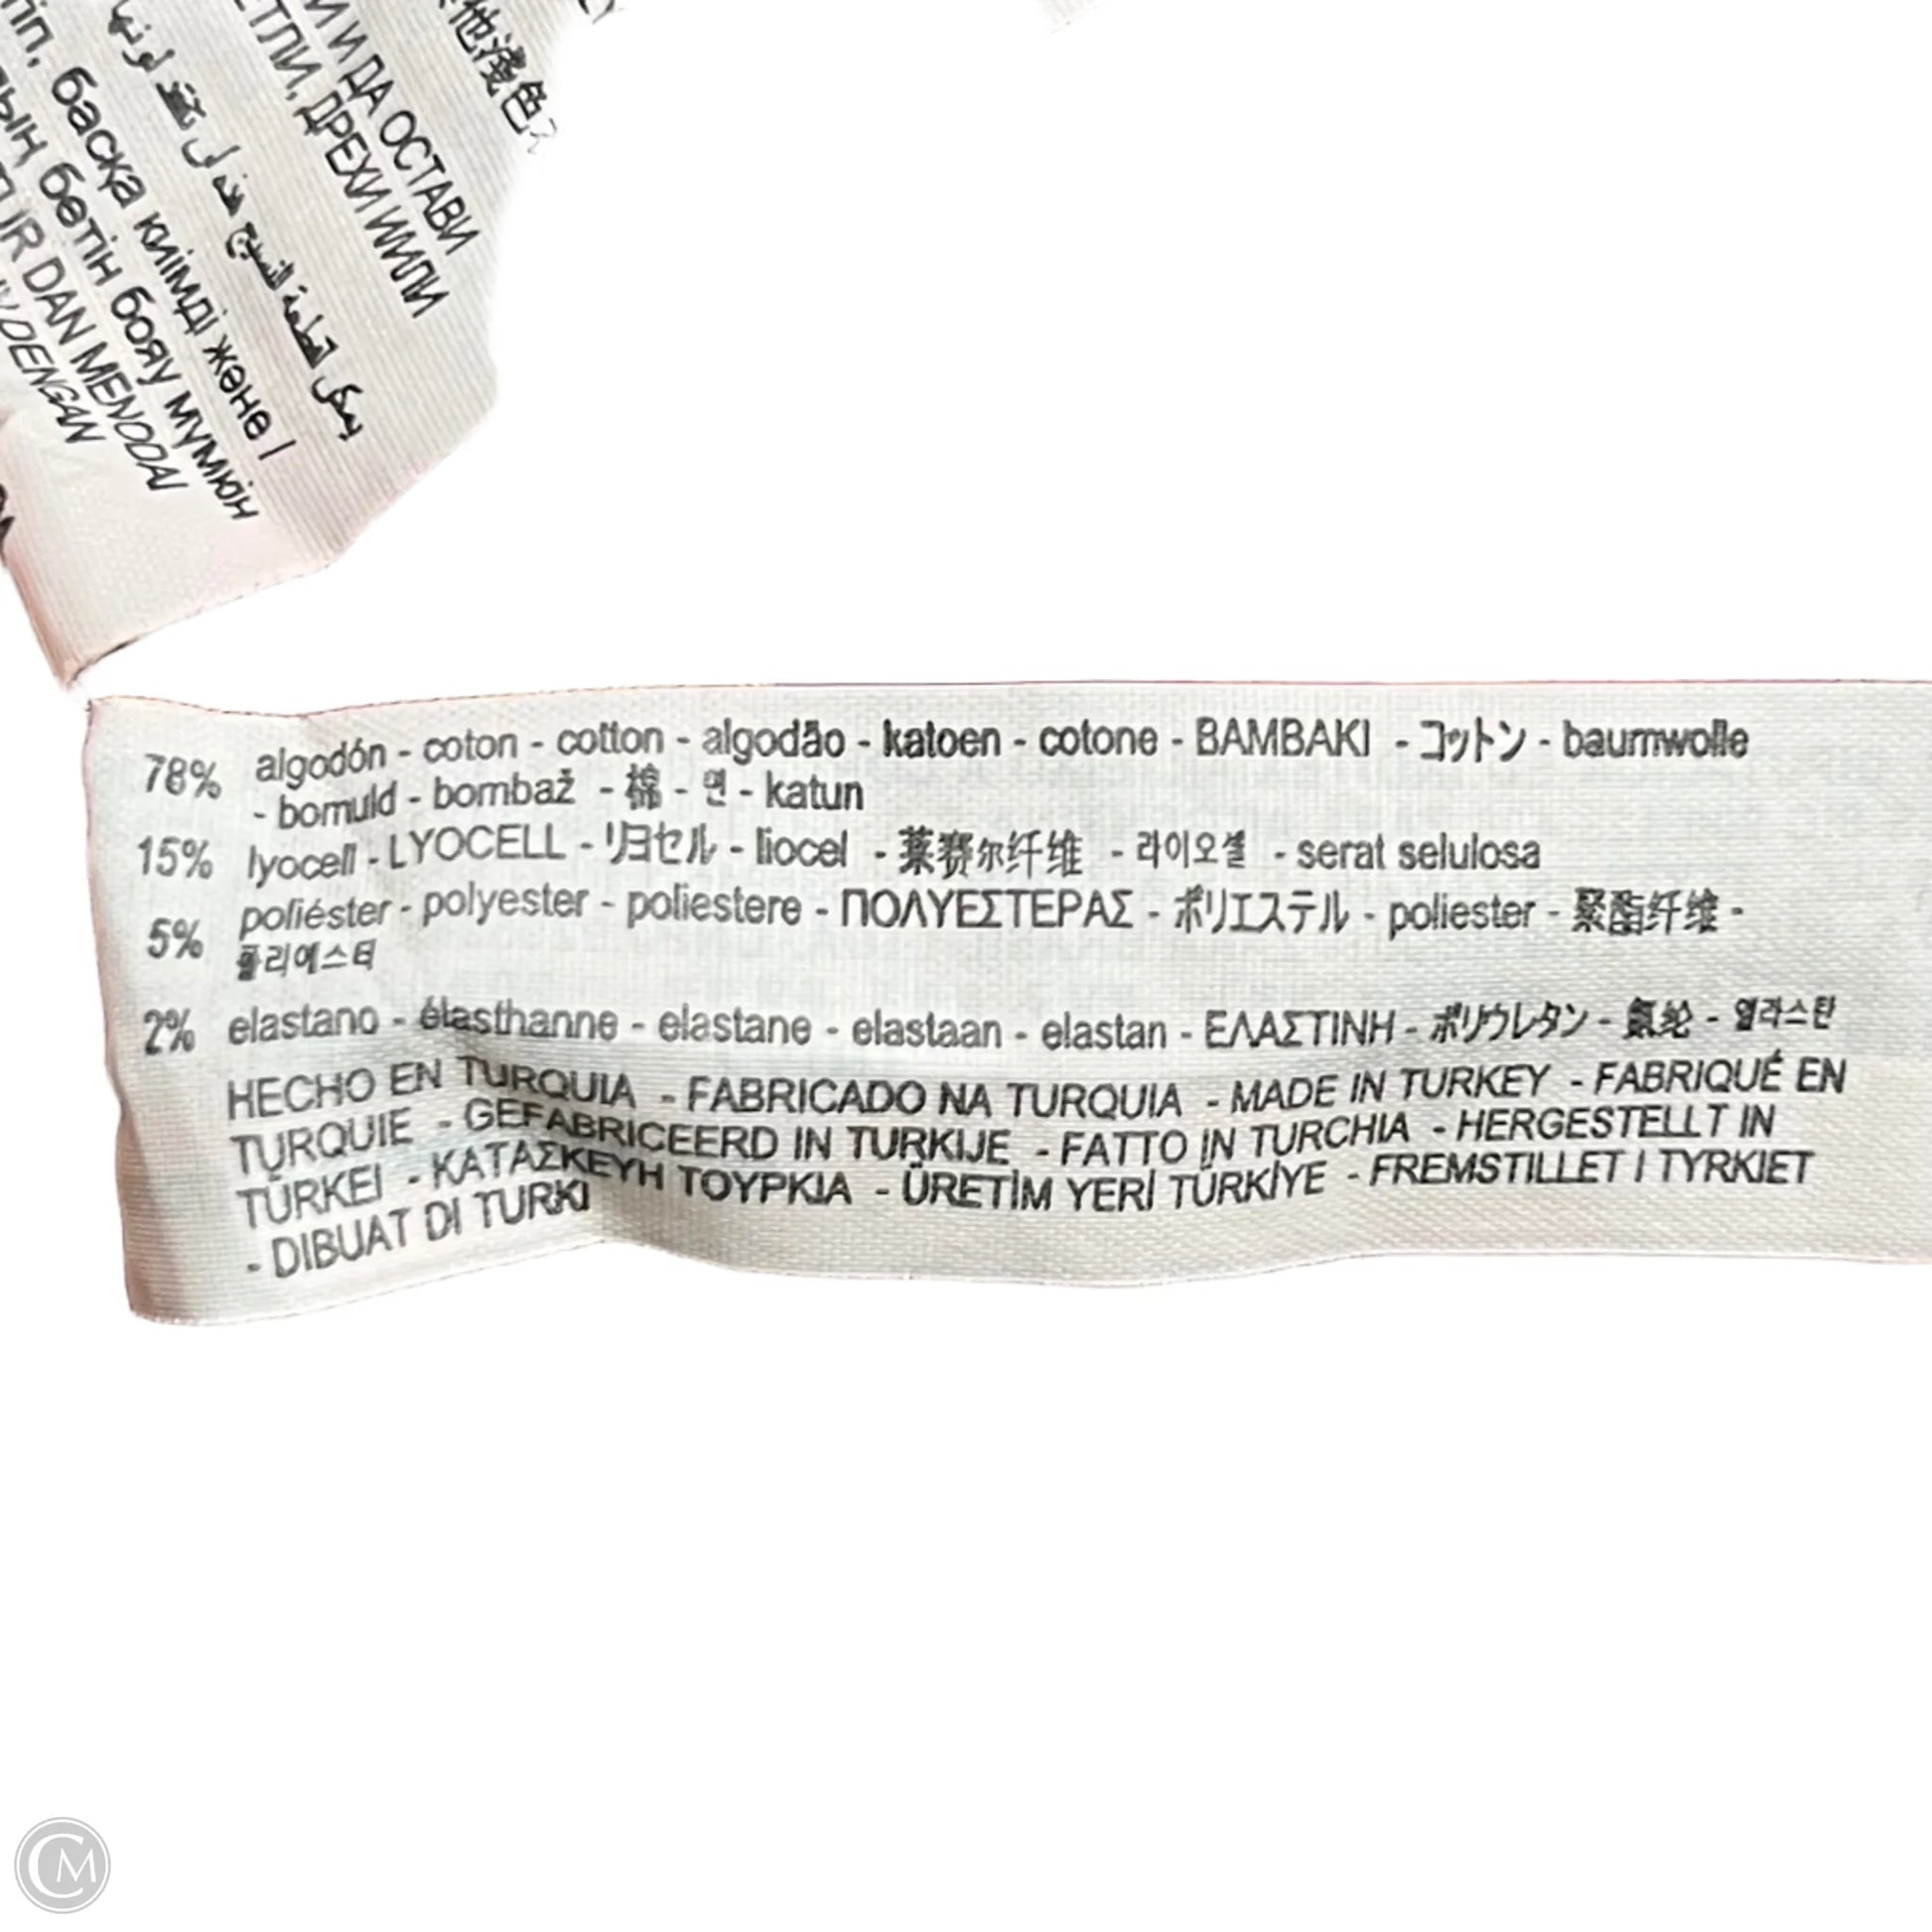 他淺色
И ДА ОСТАВИ
ЕТЛИ, ДРЕХИ ИИЛИ
يمكن لقطعة النسيج هذه أن تفقد لونها
басқа киімді және
бөтін бояу мүмкін
DAN MENODAI
DENGAN
78% algodón - coton - cotton - algodão - katoen - cotone - BAMBAKI - コットン - baumwolle
- bomuld - bombaž - 棉 - 면 - katun
15% lyocell - LYOCELL - リヨセル - liocel - 莱赛尔纤维 - 라이오셀 - serat selulosa
5% poliéster - polyester - poliestere - ΠΟΛΥΕΣΤΕΡΑΣ - ポリエステル - poliester - 聚酯纤维 -
폴리에스터
2% elastano - élasthanne - elastane - elastaan - elastan - ΕΛΑΣΤΙΝΗ - ポリウレタン - 氨纶 - 엘라스탄
HECHO EN TURQUIA - FABRICADO NA TURQUIA - MADE IN TURKEY - FABRIQUÉ EN
TURQUIE - GEFABRICEERD IN TURKIJE - FATTO IN TURCHIA - HERGESTELLT IN
TÜRKEI - ΚΑΤΑΣΚΕΥΗ ΤΟΥΡΚΙΑ - ÜRETİM YERİ TÜRKİYE - FREMSTILLET I TYRKIET
- DIBUAT DI TURKI
CM